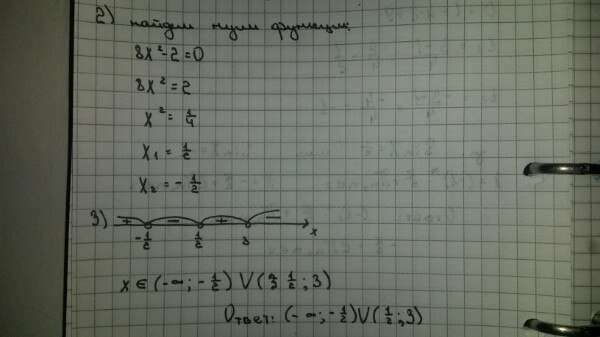 2) найдем нули функции:
8x²-2=0
8x²=2
x²=1/4
x₁=1/2
x₂=-1/2
3) + - + -
-1/2 1/2 3 x
x∈(-∞;-1/2)∪(1/2;3)
Ответ: (-∞;-1/2)∪(1/2;3)